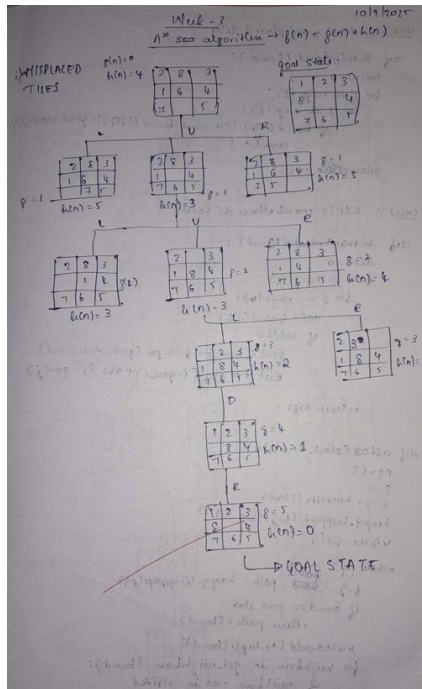 Week - 3
10/9/2025
A* seo algorithm → f(n) = g(n) + h(n)
i) MISPLACED TILES
g(n)=0
h(n)=4
2 8 3
1 6 4
7 5
goal state:
1 2 3
8 4
7 6 5
L U R
2 8 3
1 6 4
7 5
g=1
h(n)=5
2 8 3
1 4
7 6 5
g=1
h(n)=3
2 8 3
1 6 4
7 5
g=1
h(n)=5
L U R
2 8 3
1 4
7 6 5
h(n)=3
2 3
1 8 4
7 6 5
g=2
h(n)=3
2 8 3
1 4
7 6 5
h(n)=4
L R
2 3
1 8 4
7 6 5
g=3
h(n)=2
2 3
1 8 4
7 6 5
g=3
h(n)=
D
1 2 3
8 4
7 6 5
g=4
h(n)=1
R
1 2 3
8 4
7 6 5
g=5
h(n)=0
GOAL STATE